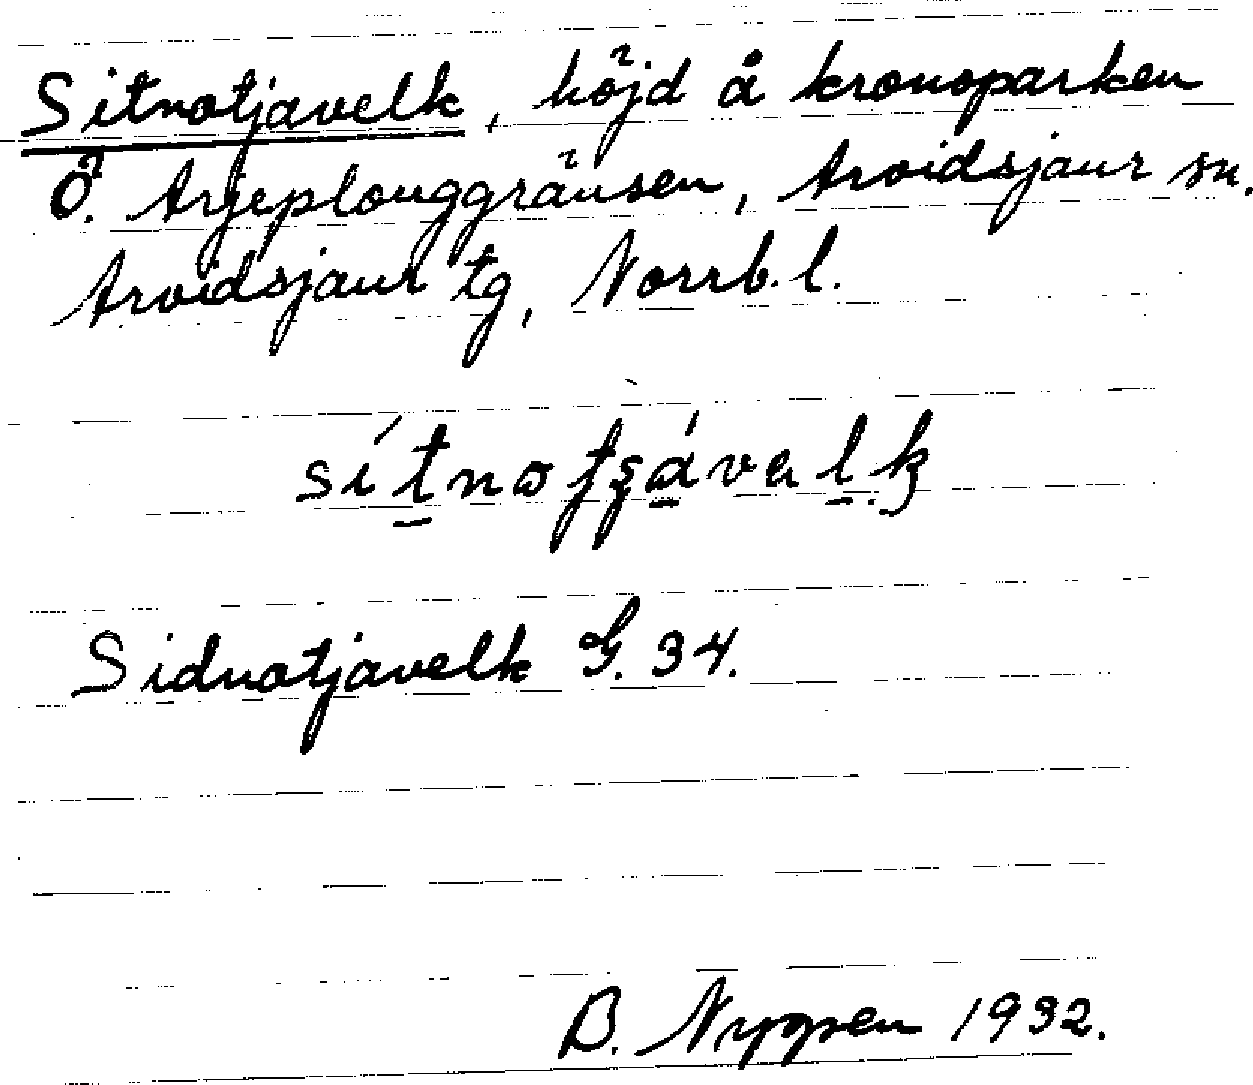 Sitnotjavelk, höjd å kronoparken
Ö. Arjeplouggränsen, Arvidsjaur sn.
Arvidsjaur tg, Norrb. l.
Sidnotjavelk G. 34.
B. Nygren 1932.